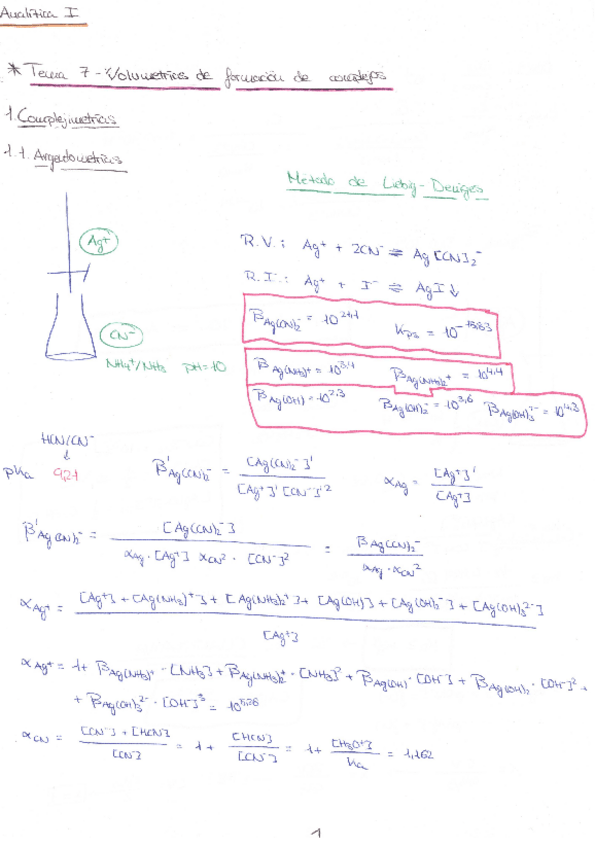 Analítica I
* Tema 7 - Volumetrías de formación de complejos
1. Complejimetrías
1.1. Argentometrías
Método de Liebig-Denigès
Ag⁺
R.V.: Ag⁺ + 2CN⁻ ⇌ Ag[CN]₂⁻
R.I.: Ag⁺ + I⁻ ⇌ AgI↓
CN⁻
β Ag(CN)₂⁻ = 10^21,1 Kps =
NH₄⁺/NH₃ pH=10
β Ag(NH₃)⁺ = 10^3,4 β Ag(NH₃)₂⁺ = 10^4,4
β Ag(OH) = 10^2,3 β Ag(OH)₂⁻ = 10^3,6 β Ag(OH)₃²⁻ = 10^4,3
HCN/CN⁻
↓
pKa 9,21
β' Ag(CN)₂⁻ = [Ag(CN)₂⁻]' / [Ag⁺]' [CN⁻]'² αAg = [Ag⁺]' / [Ag⁺]
β' Ag(CN)₂⁻ = [Ag(CN)₂⁻] / αAg · [Ag⁺] αCN² · [CN⁻]² = β Ag(CN)₂⁻ / αAg · αCN²
αAg⁺ = [Ag⁺] + [Ag(NH₃)⁺] + [Ag(NH₃)₂⁺] + [Ag(OH)] + [Ag(OH)₂⁻] + [Ag(OH)₃²⁻] / [Ag⁺]
αAg⁺ = 1 + β Ag(NH₃)⁺ · [NH₃] + β Ag(NH₃)₂⁺ · [NH₃]² + β Ag(OH) · [OH⁻] + β Ag(OH)₂⁻ · [OH⁻]² +
+ β Ag(OH)₃²⁻ · [OH⁻]³ =
αCN = [CN⁻] + [HCN] / [CN⁻] = 1 + [HCN] / [CN⁻] = 1 + [H₃O⁺] / Ka = 1,162
1